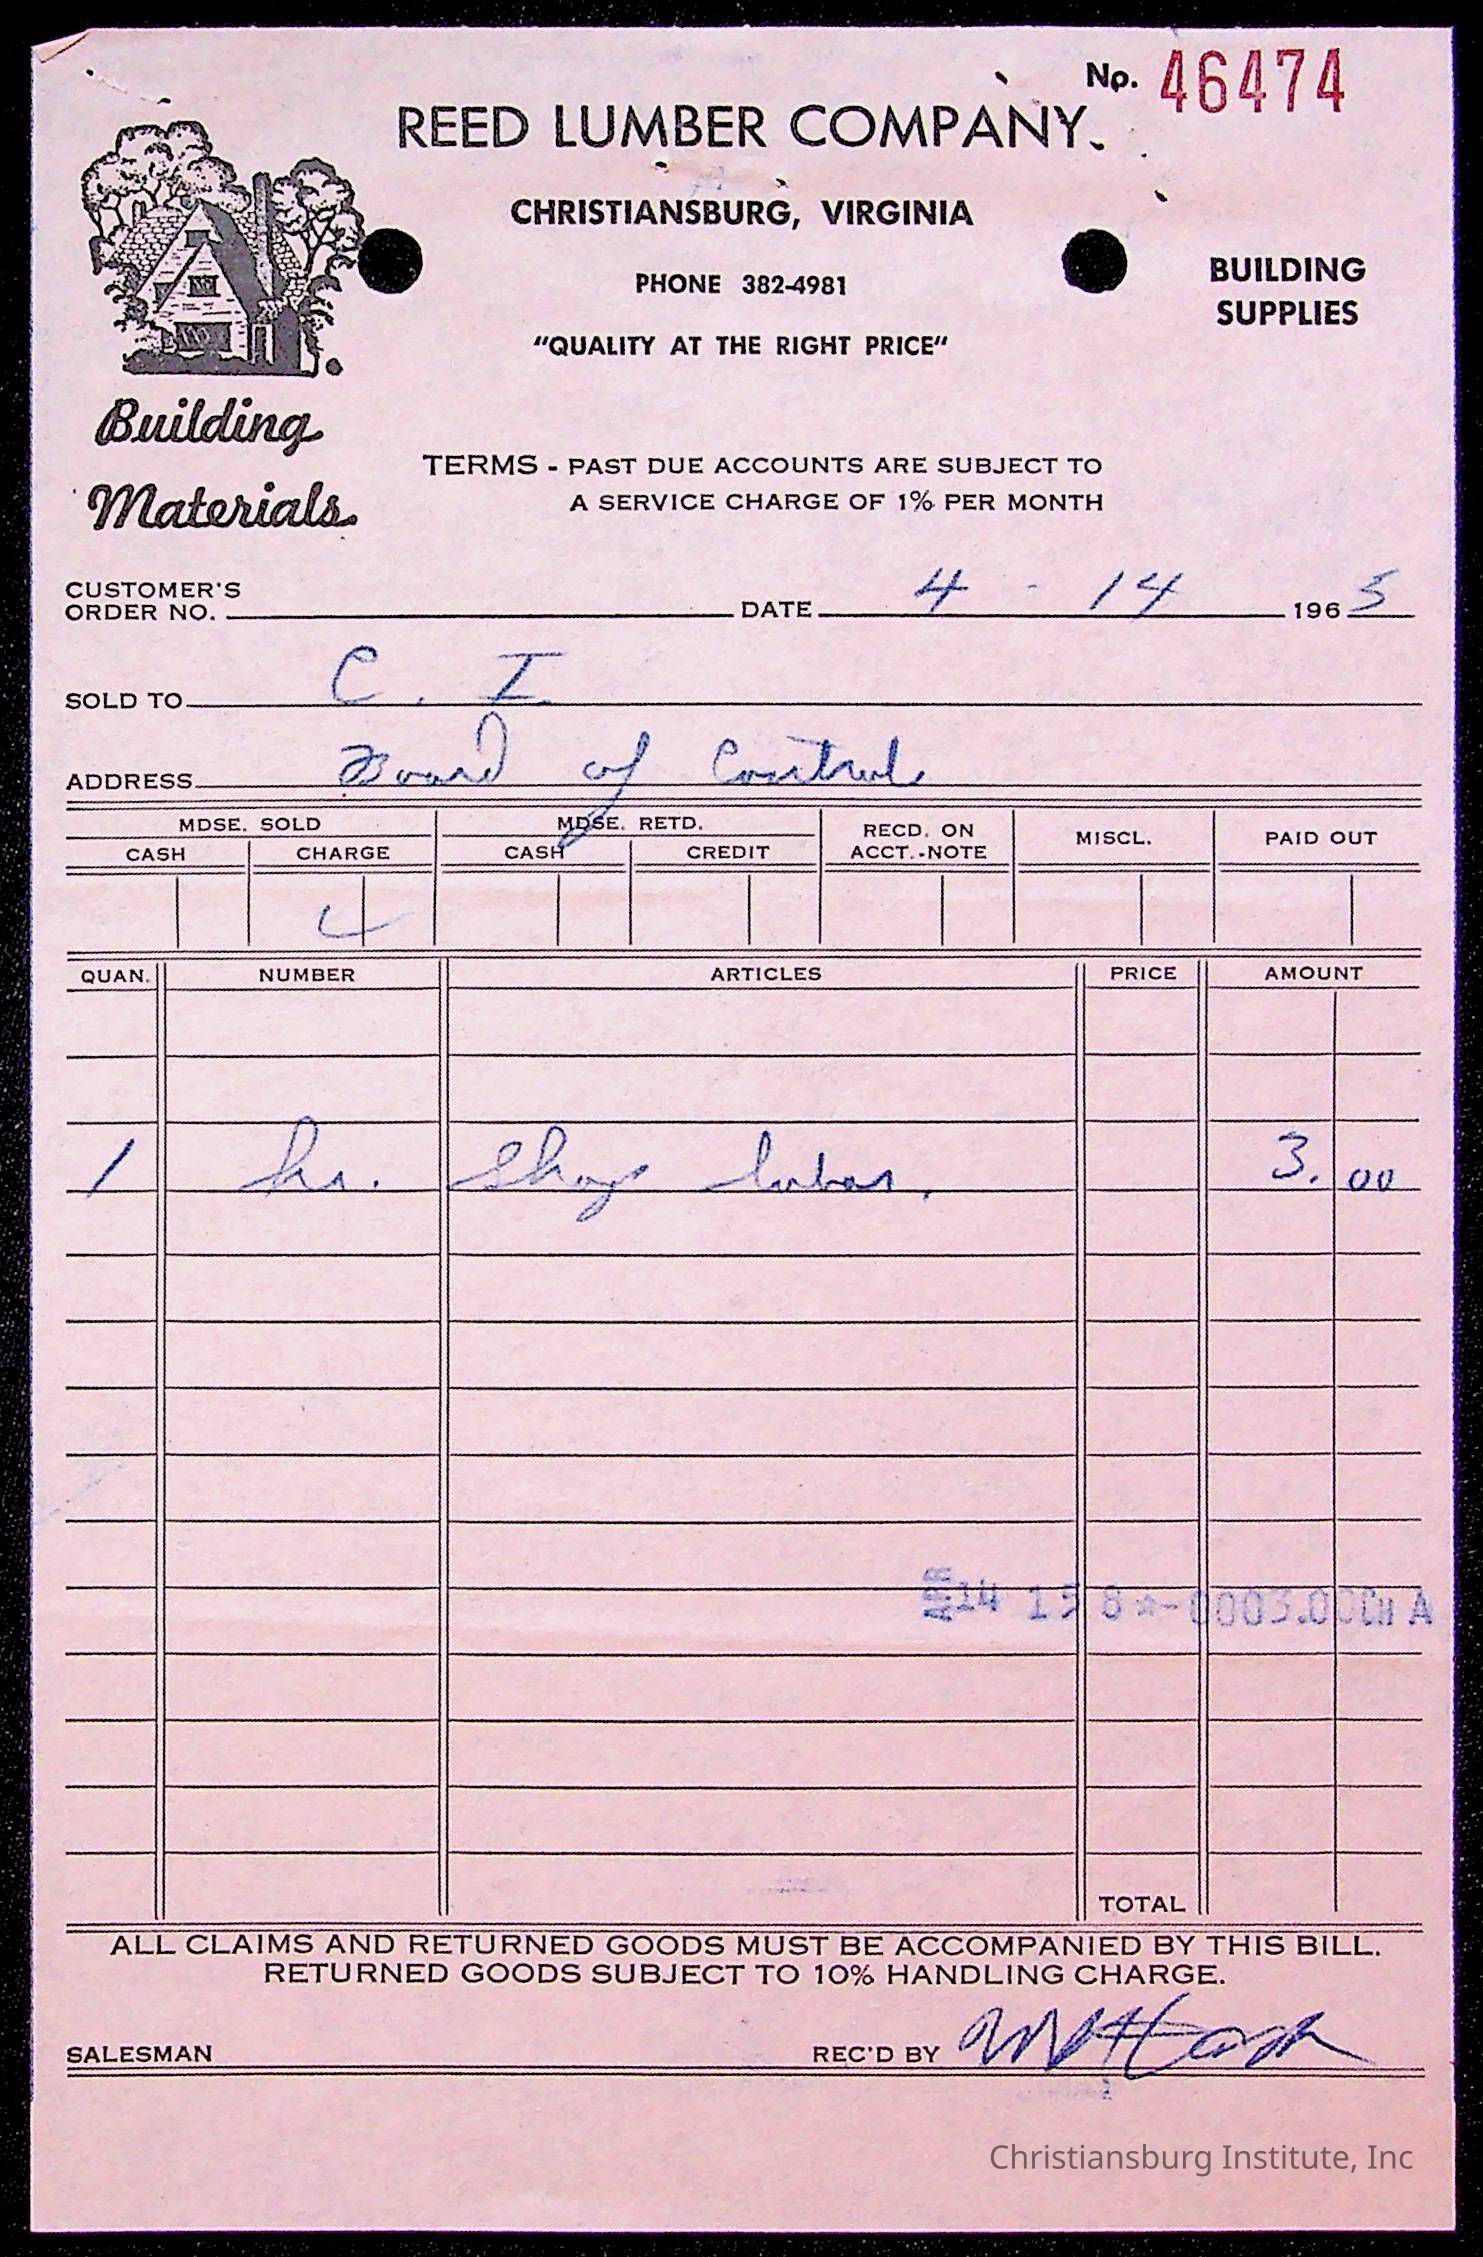 No. 46474
REED LUMBER COMPANY.
CHRISTIANSBURG, VIRGINIA
PHONE 382-4981
"QUALITY AT THE RIGHT PRICE"
BUILDING
SUPPLIES
Building
Materials
TERMS - PAST DUE ACCOUNTS ARE SUBJECT TO
A SERVICE CHARGE OF 1% PER MONTH
CUSTOMER'S
ORDER NO. DATE 4 - 14 1965
SOLD TO C. I.
ADDRESS Board of Control
MDSE. SOLD MDSE. RETD. RECD. ON ACCT.-NOTE MISCL. PAID OUT
CASH CHARGE CASH CREDIT
QUAN. NUMBER ARTICLES PRICE AMOUNT
1 hr. Shop labor. 3.00
APR 14 158 *-0003.00CH A
TOTAL
ALL CLAIMS AND RETURNED GOODS MUST BE ACCOMPANIED BY THIS BILL.
RETURNED GOODS SUBJECT TO 10% HANDLING CHARGE.
SALESMAN REC'D BY
Christiansburg Institute, Inc